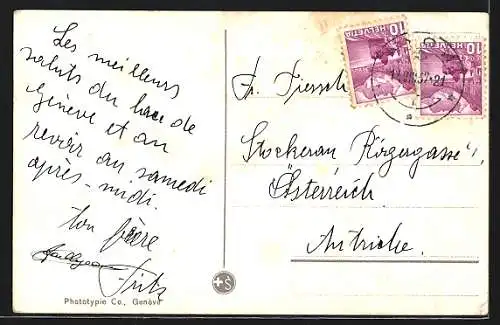 Les meilleurs
saluts du lac de
Genève et au
revoir au samedi
après-midi
ton frère
Fritz
Phototypie Co., Genève
+S
10
HELVETIA
10
HELVETIA
Fr.
Stockerau
Österreich
Autriche.